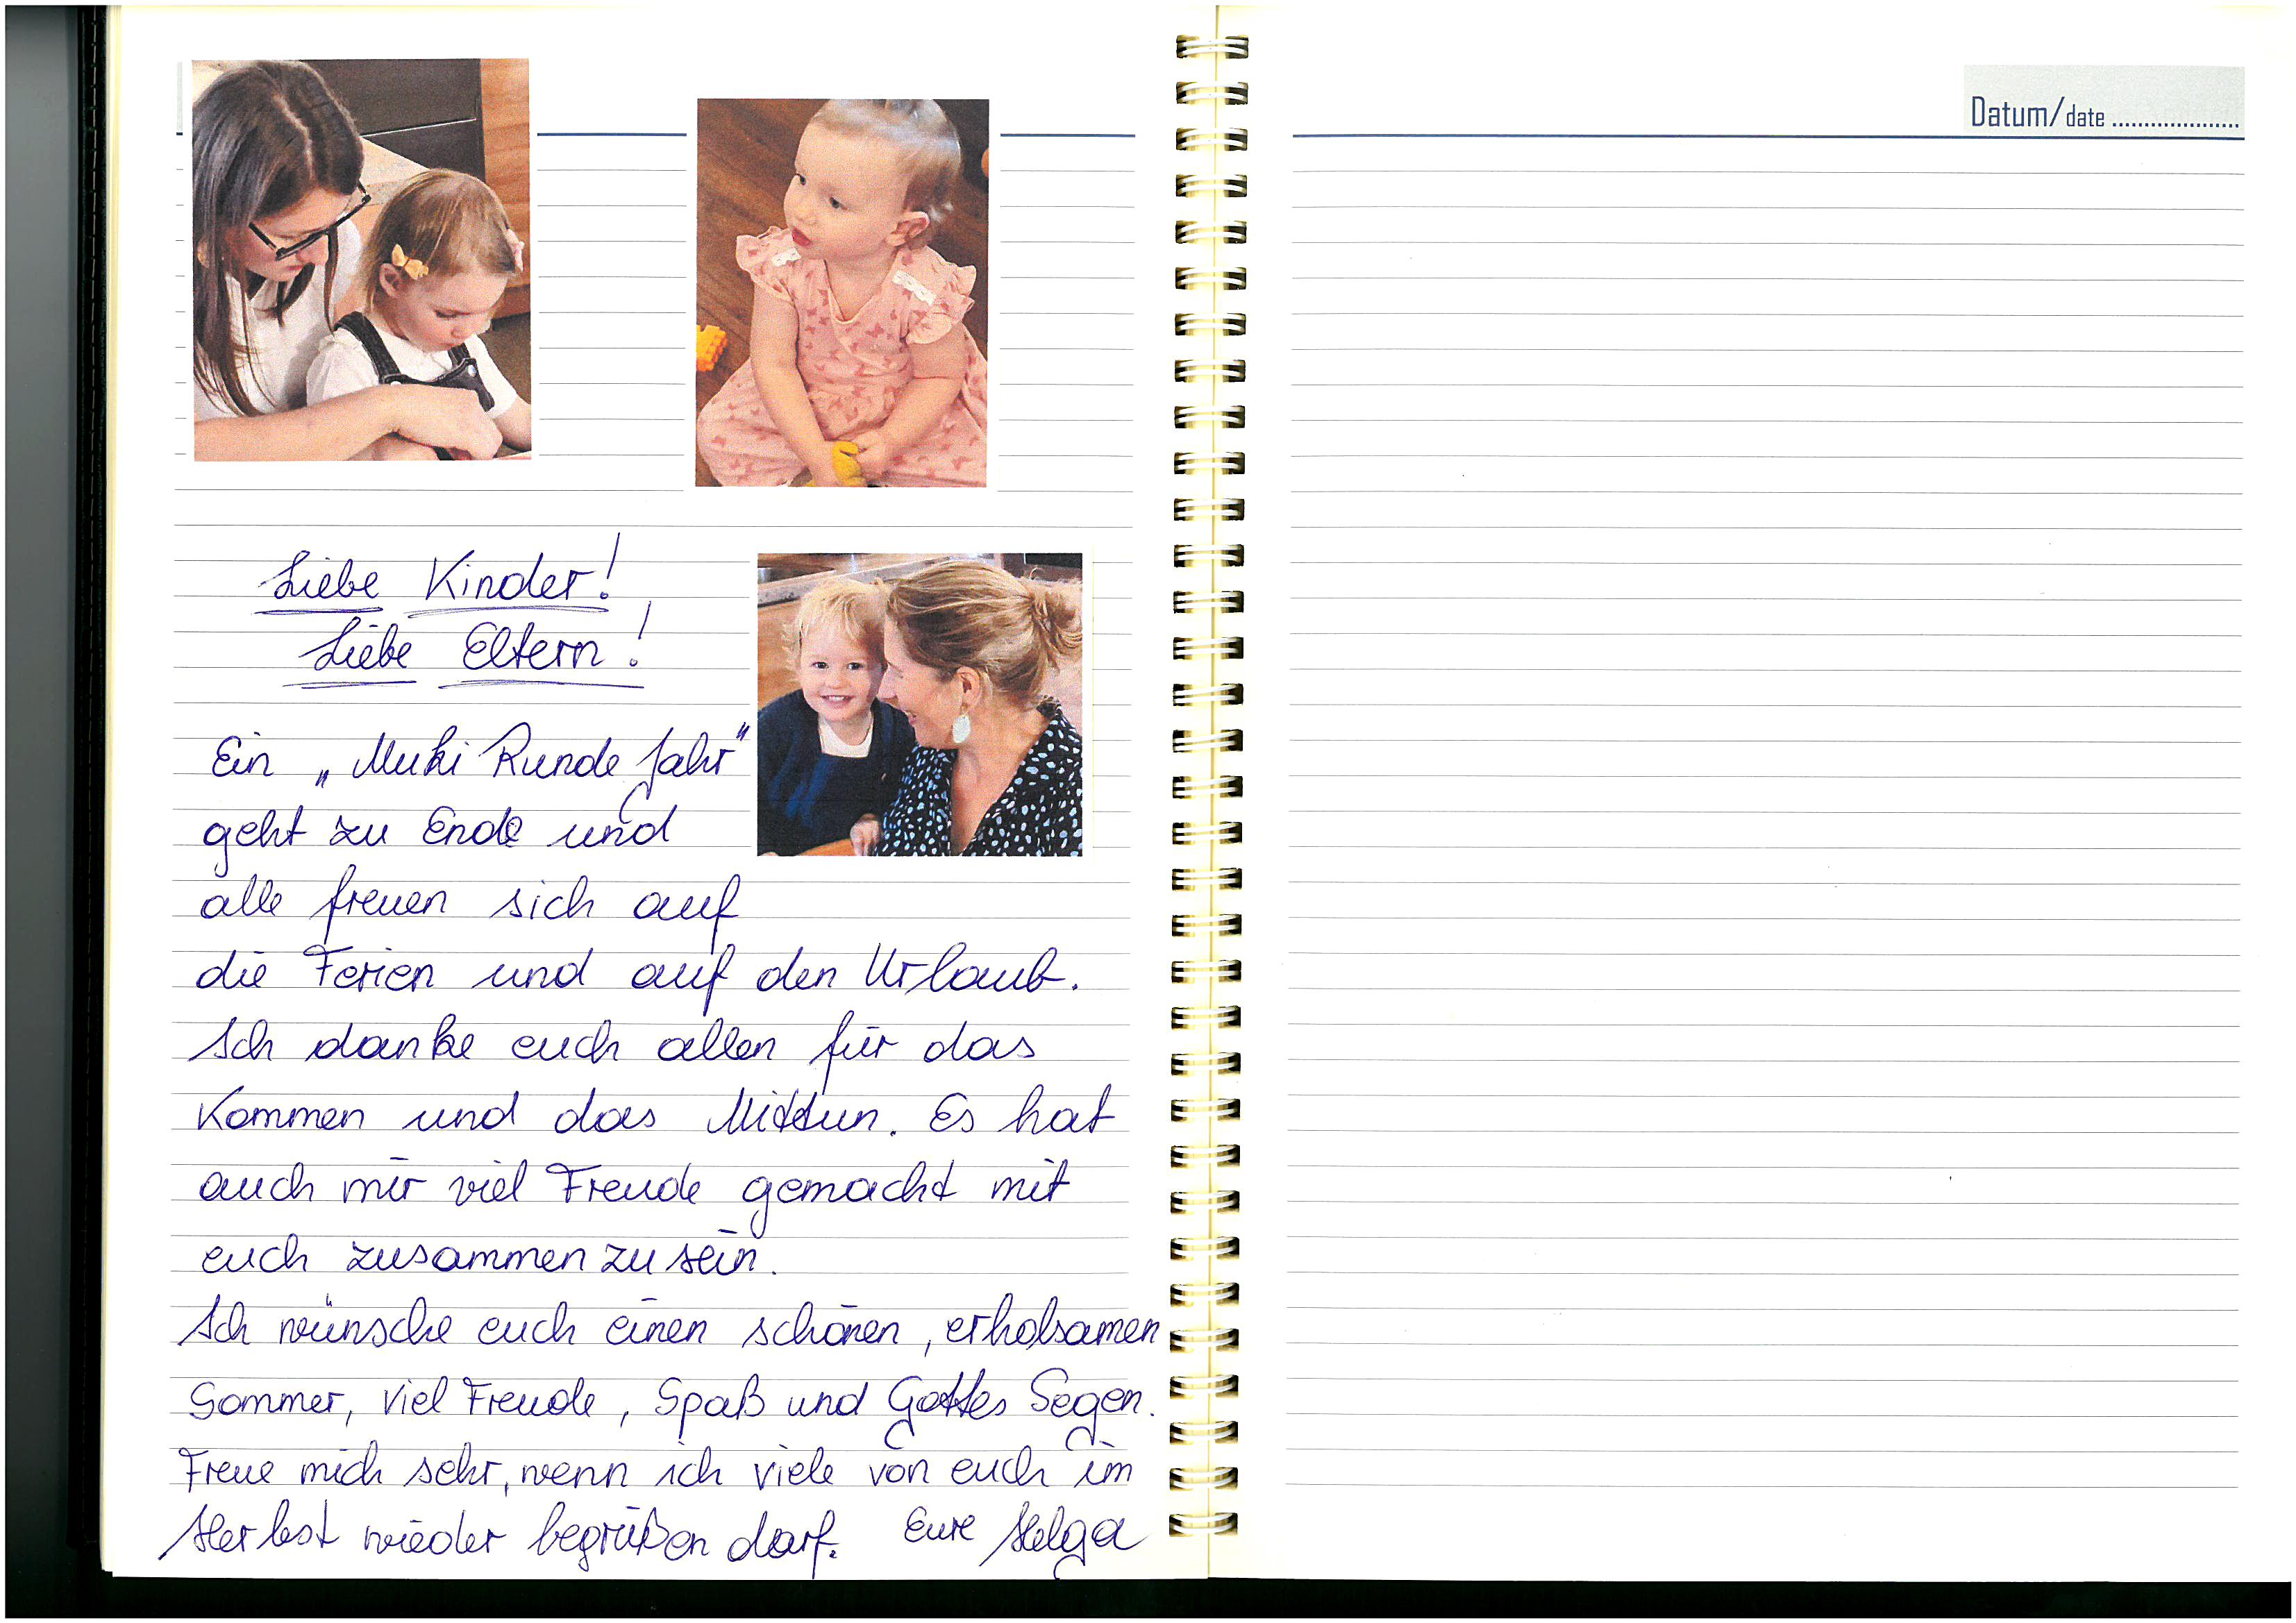 Liebe Kinder!
Liebe Eltern!
Ein „Muki Runde Jahr"
geht zu Ende und
alle freuen sich auf
die Ferien und auf den Urlaub.
Ich danke euch allen für das
Kommen und das Mittun. Es hat
auch mir viel Freude gemacht mit
euch zusammen zu sein.
Ich wünsche euch einen schönen, erholsamen
Sommer, viel Freude, Spaß und Gottes Segen.
Freue mich sehr, wenn ich viele von euch im
Herbst wieder begrüßen darf. Eure Helga
Datum/date ....................